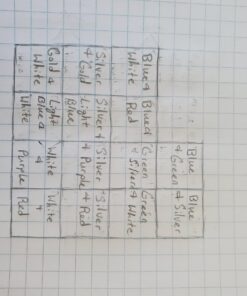 Blue Blue
& Green & Silver
Blue & Blue & Green Green
White Red & Silver & White
Silver Silver & Silver Silver
& Gold Light & Purple & Red
Blue
Gold & Light White White
White Blue & & &
White Purple Red